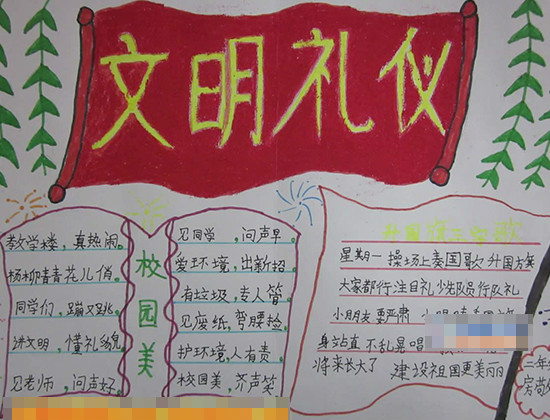 文明礼仪
教学楼，真热闹。
杨柳青青花儿俏。
同学们，蹦又跳。
讲文明，懂礼貌
见老师，问声好。
校园美
见同学，问声早。
爱环境，出新招
有垃圾，专人管。
见废纸，弯腰捡
护环境，人有责。
校园美，齐声笑
升国旗 歌
星期一 操场上奏国歌升国旗
大家都行注目礼少先队员行队礼
小朋友要严肃
身站直 不乱晃
将来长大了 建设祖国更美丽